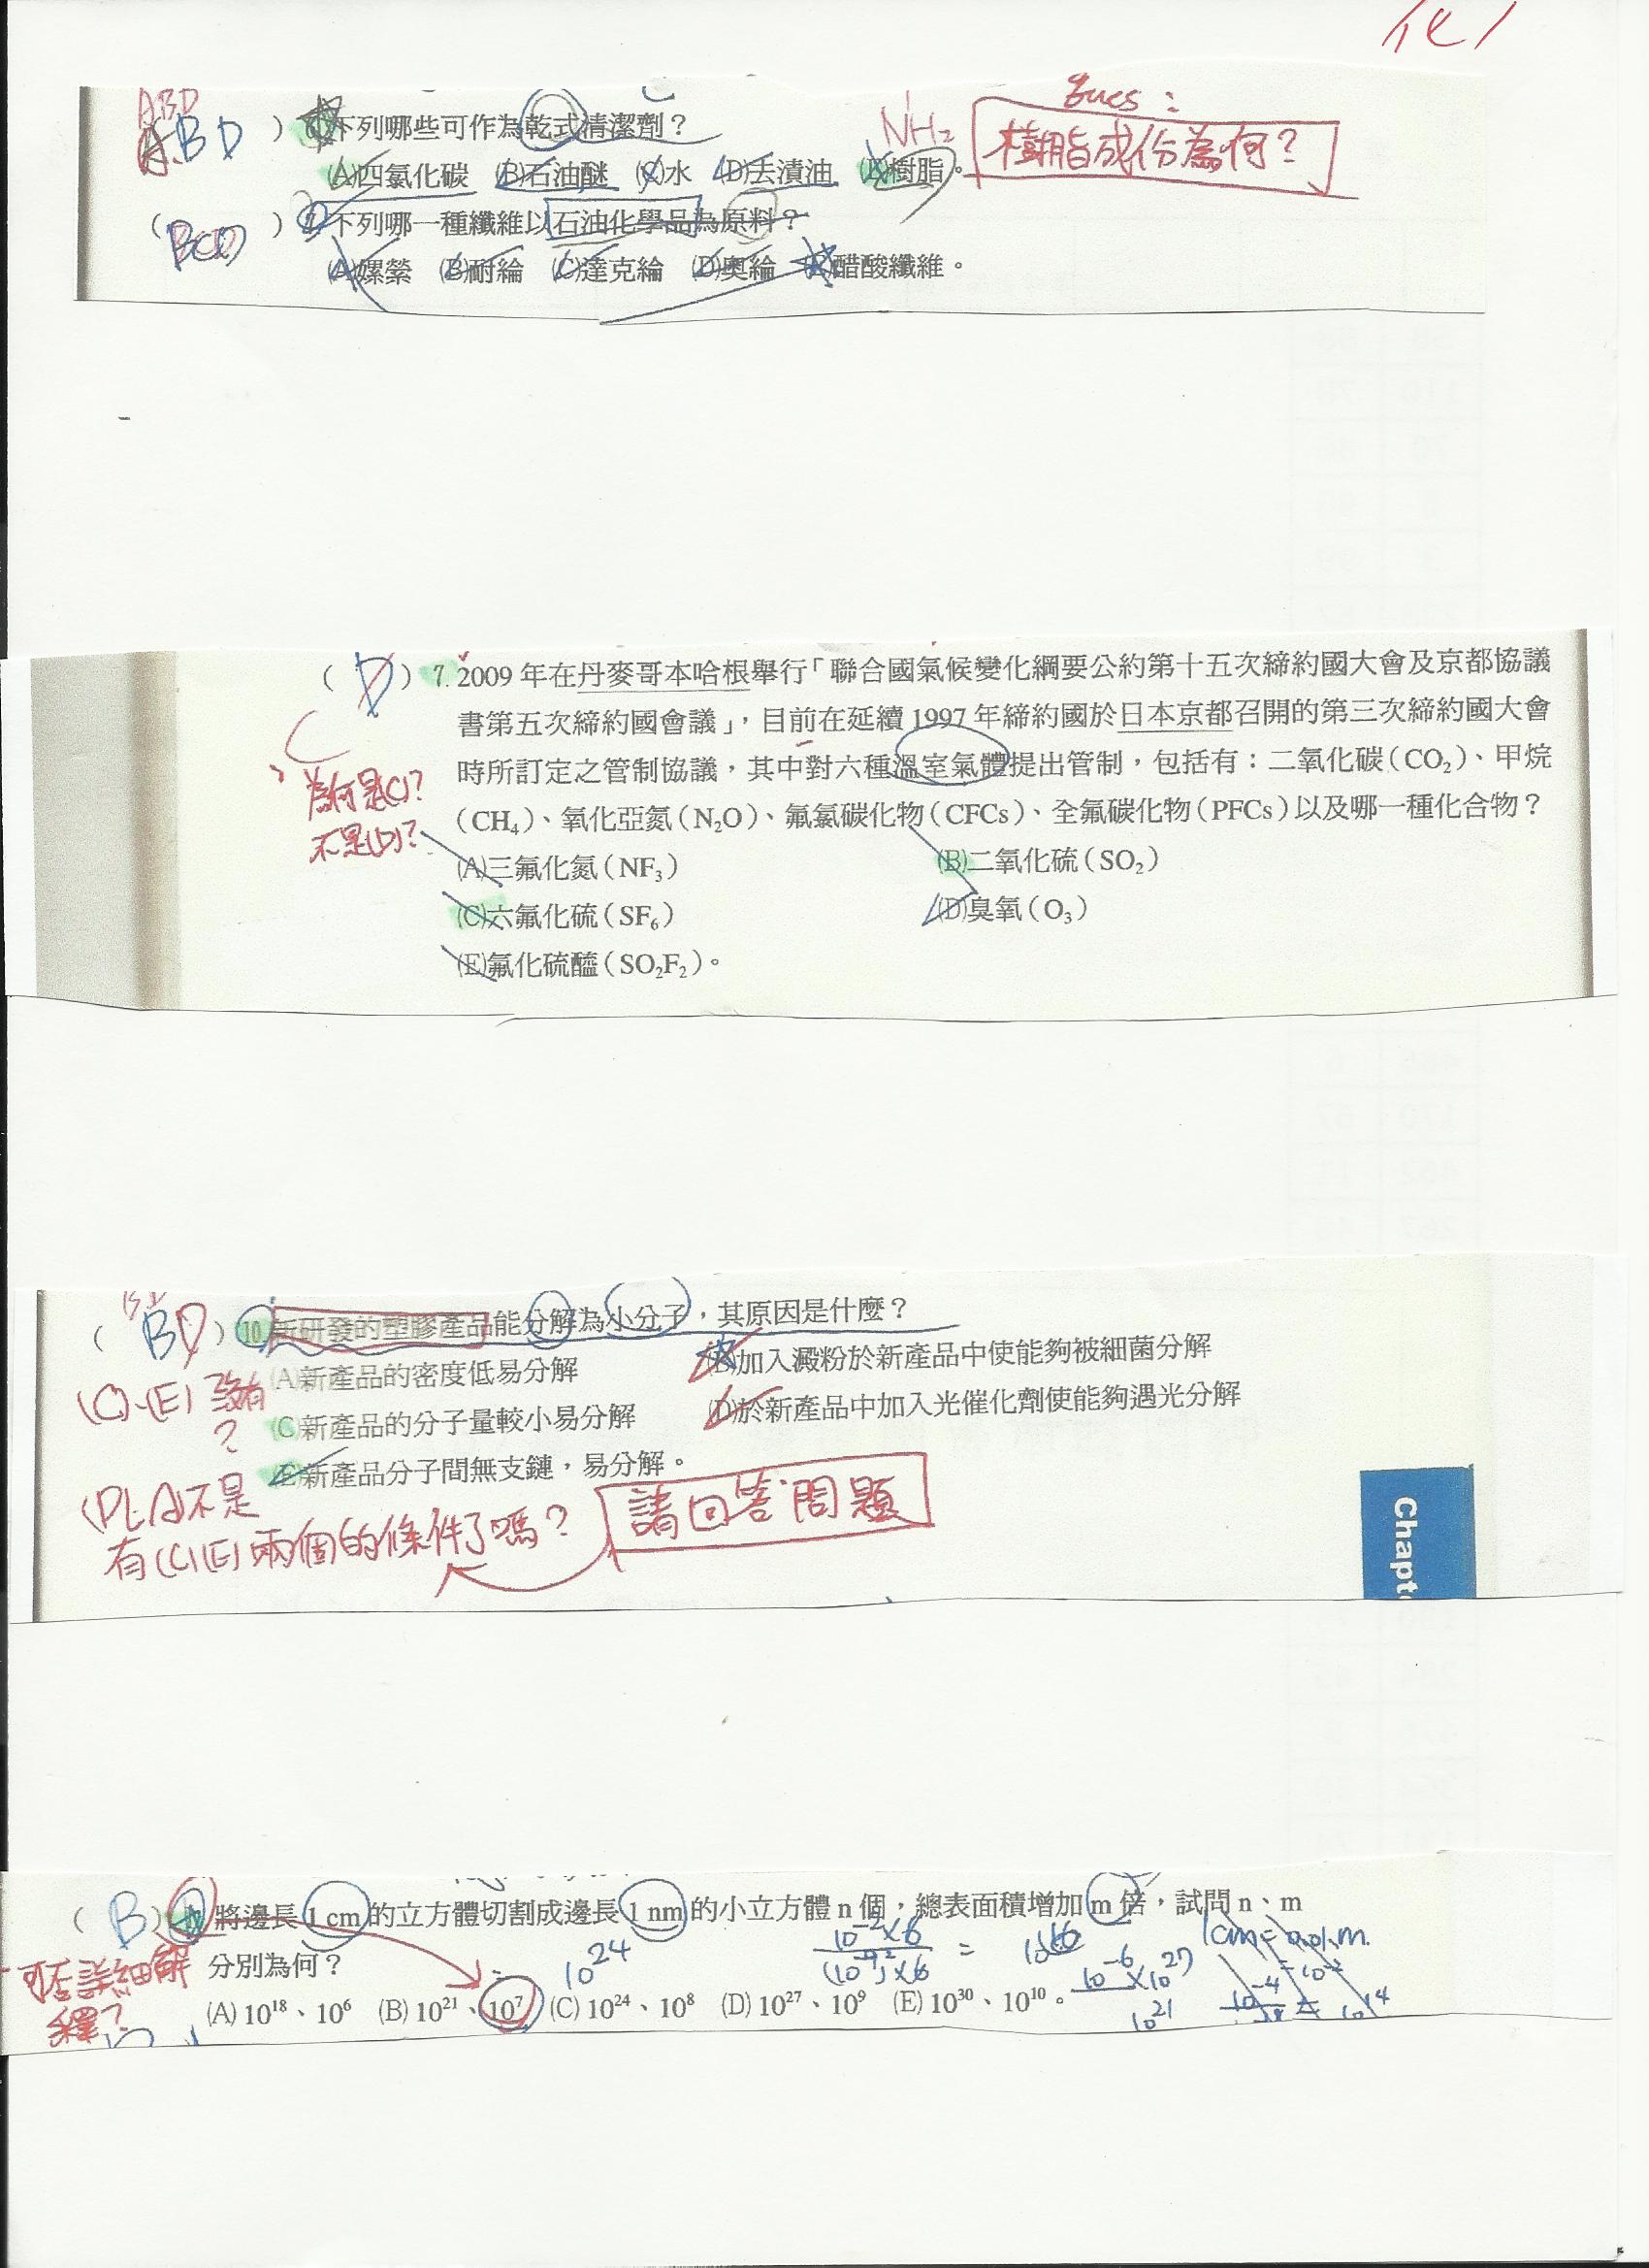 化1
ABD
ABD ) 6.下列哪些可作為乾式清潔劑？
Ques：
樹脂成份為何？
NH2
(A)四氯化碳 (B)石油醚 (C)水 (D)去漬油 (E)樹脂。
( BCD ) 7.下列哪一種纖維以石油化學品為原料？
(A)嫘縈 (B)耐綸 (C)達克綸 (D)奧綸 (E)醋酸纖維。
( D ) 7. 2009 年在丹麥哥本哈根舉行「聯合國氣候變化綱要公約第十五次締約國大會及京都協議
書第五次締約國會議」，目前在延續 1997 年締約國於日本京都召開的第三次締約國大會
時所訂定之管制協議，其中對六種溫室氣體提出管制，包括有：二氧化碳（CO₂）、甲烷
（CH₄）、氧化亞氮（N₂O）、氟氯碳化物（CFCs）、全氟碳化物（PFCs）以及哪一種化合物？
C
為何是(C)？
不是(D)？
(A)三氟化氮（NF₃） (B)二氧化硫（SO₂）
(C)六氟化硫（SF₆） (D)臭氧（O₃）
(E)氟化硫醯（SO₂F₂）。
( BD ) 10.新研發的塑膠產品能分解為小分子，其原因是什麼？
(A)新產品的密度低易分解 (B)加入澱粉於新產品中使能夠被細菌分解
(C)新產品的分子量較小易分解 (D)於新產品中加入光催化劑使能夠遇光分解
(E)新產品分子間無支鏈，易分解。
(C)、(E) 沒有
？
(PLA)不是
有(C)(E)兩個的條件了嗎？
請回答問題
Chapt
( B ) 將邊長 1 cm 的立方體切割成邊長 1 nm 的小立方體 n 個，總表面積增加 m 倍，試問 n、m
分別為何？
(A) 10¹⁸、10⁶ (B) 10²¹、10⁷ (C) 10²⁴、10⁸ (D) 10²⁷、10⁹ (E) 10³⁰、10¹⁰。
可否詳細解
釋？
10²⁴
1cm=0.01m
=10⁻²
10⁻⁶×10²⁷
10²¹
10¹⁴